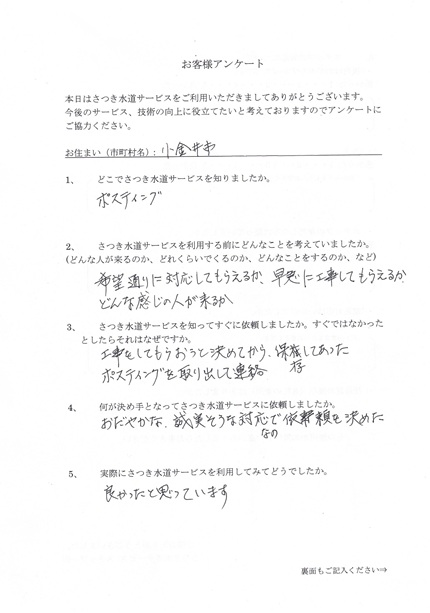 お客様アンケート
本日はさつき水道サービスをご利用いただきましてありがとうございます。
今後のサービス、技術の向上に役立てたいと考えておりますのでアンケートに
ご協力ください。
お住まい（市町村名）：小金井市
1、 どこでさつき水道サービスを知りましたか。
ポスティング
2、 さつき水道サービスを利用する前にどんなことを考えていましたか。
(どんな人が来るのか、どれくらいでくるのか、どんなことをするのか、など)
希望通りに対応してもらえるか、早急に工事してもらえるか
どんな感じの人が来るか
3、 さつき水道サービスを知ってすぐに依頼しましたか。すぐではなかった
としたらそれはなぜですか。
工事をしてもらおうと決めてから、保存してあった
ポスティングを取り出して連絡
4、 何が決め手となってさつき水道サービスに依頼しましたか。
おだやかな、誠実そうな対応なので依頼を決めた
5、 実際にさつき水道サービスを利用してみてどうでしたか。
良かったと思っています
裏面もご記入ください⇒